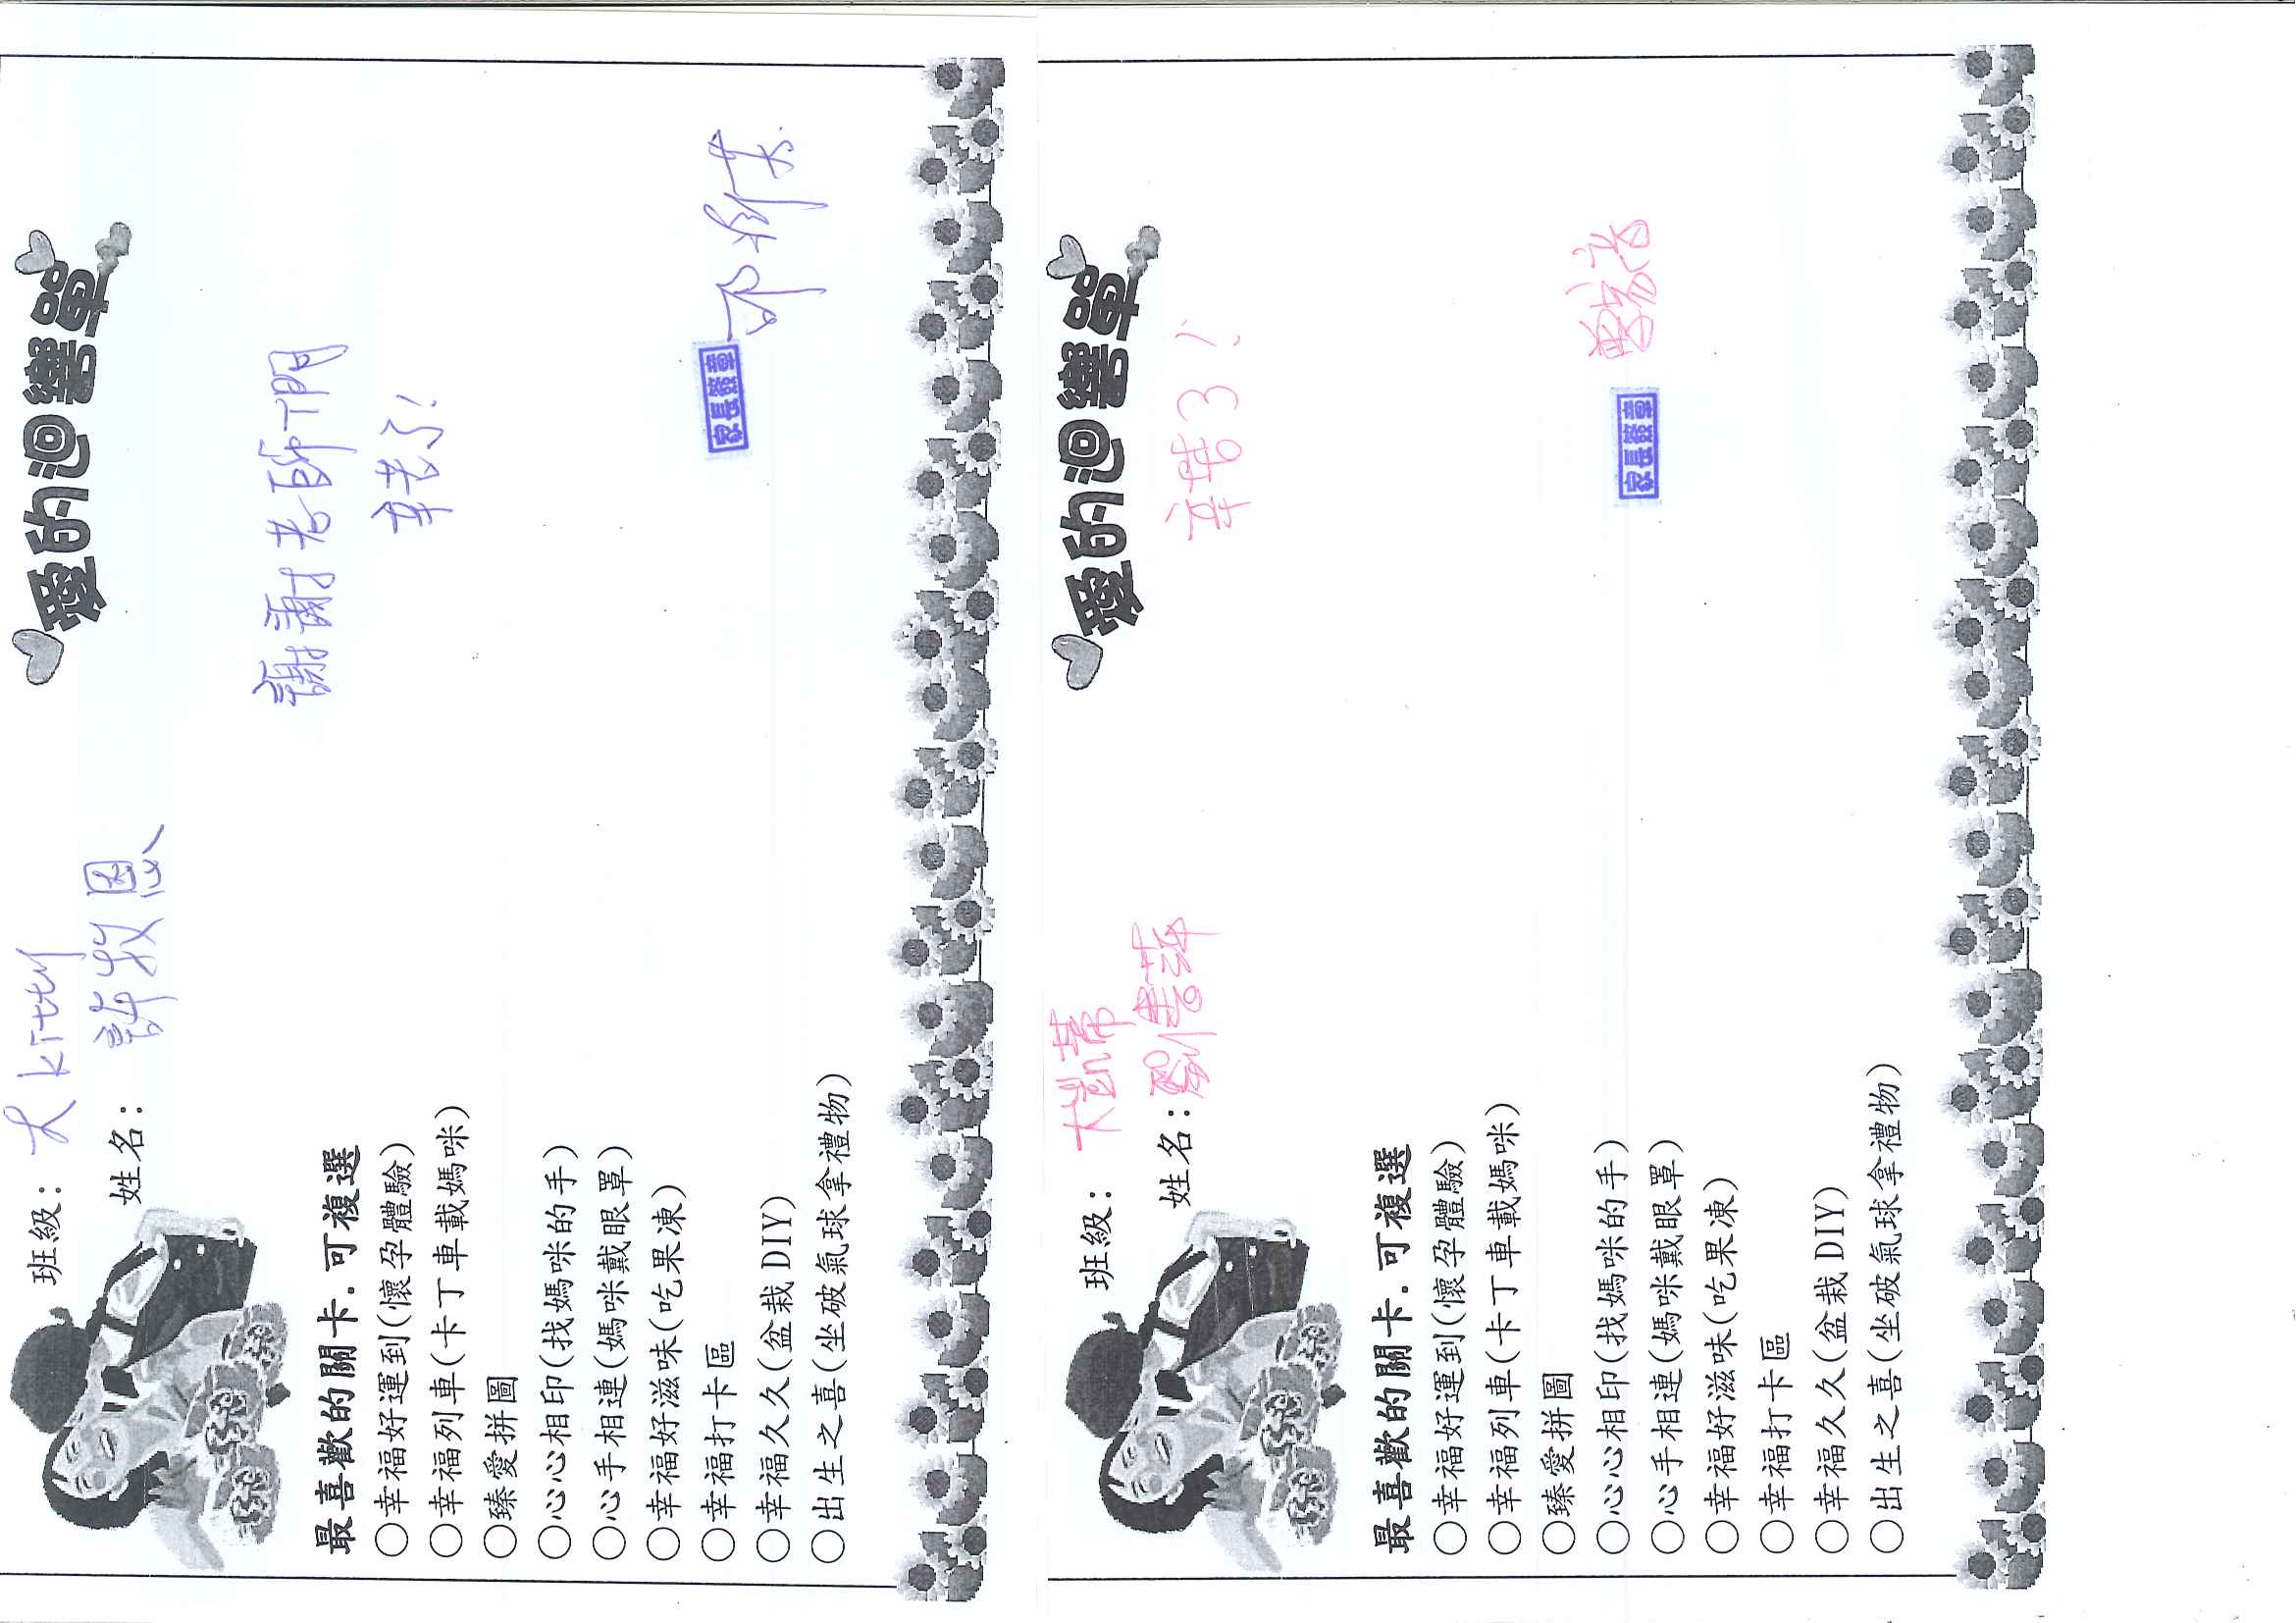 愛的迴響單
班級：大 kitty
姓名：許牧恩
謝謝老師們
辛苦了！
最喜歡的關卡．可複選
○幸福好運到(懷孕體驗)
○幸福列車(卡丁車載媽咪)
○臻愛拼圖
○心心相印(找媽咪的手)
○心手相連(媽咪戴眼罩)
○幸福好滋味(吃果凍)
○幸福打卡區
○幸福久久(盆栽DIY)
○出生之喜(坐破氣球拿禮物)
家長簽章
愛的迴響單
班級：大凱蒂
姓名：劉書菲
辛苦了！
最喜歡的關卡．可複選
○幸福好運到(懷孕體驗)
○幸福列車(卡丁車載媽咪)
○臻愛拼圖
○心心相印(找媽咪的手)
○心手相連(媽咪戴眼罩)
○幸福好滋味(吃果凍)
○幸福打卡區
○幸福久久(盆栽DIY)
○出生之喜(坐破氣球拿禮物)
家長簽章